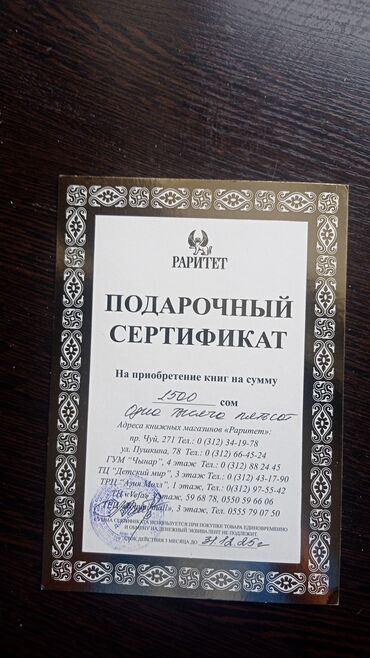 РАРИТЕТ
ПОДАРОЧНЫЙ
СЕРТИФИКАТ
На приобретение книг на сумму
1500 сом
Одна тысяча пятьсот
Адреса книжных магазинов «Раритет»:
пр. Чуй, 271 Тел.: 0 (312) 34-19-78
ул. Пушкина, 78 Тел.: 0 (312) 66-45-24
ГУМ "Чынар", 4 этаж Тел.: 0 (312) 88 24 45
ТЦ "Детский мир", 3 этаж Тел.: 0 (312) 43-17-90
ТРЦ "Азия Молл", 1 этаж, Тел.: 0(312) 97-55-42
ТЦ «Vefa» этаж, 59 68 78, 0550 59 66 06
3 этаж, Тел. 0555 79 07 50
СУММА СЕРТИФИКАТА ИСПОЛЬЗУЕТСЯ ПРИ ПОКУПКЕ ТОВАРА ЕДИНОВРЕМЕННО
И ОБМЕНУ НА ДЕНЕЖНЫЙ ЭКВИВАЛЕНТ НЕ ПОДЛЕЖИТ.
СРОК ДЕЙСТВИЯ 3 МЕСЯЦА ДО 31.12.25г